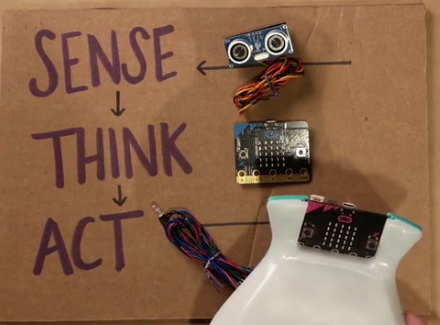 SENSE
THINK
ACT